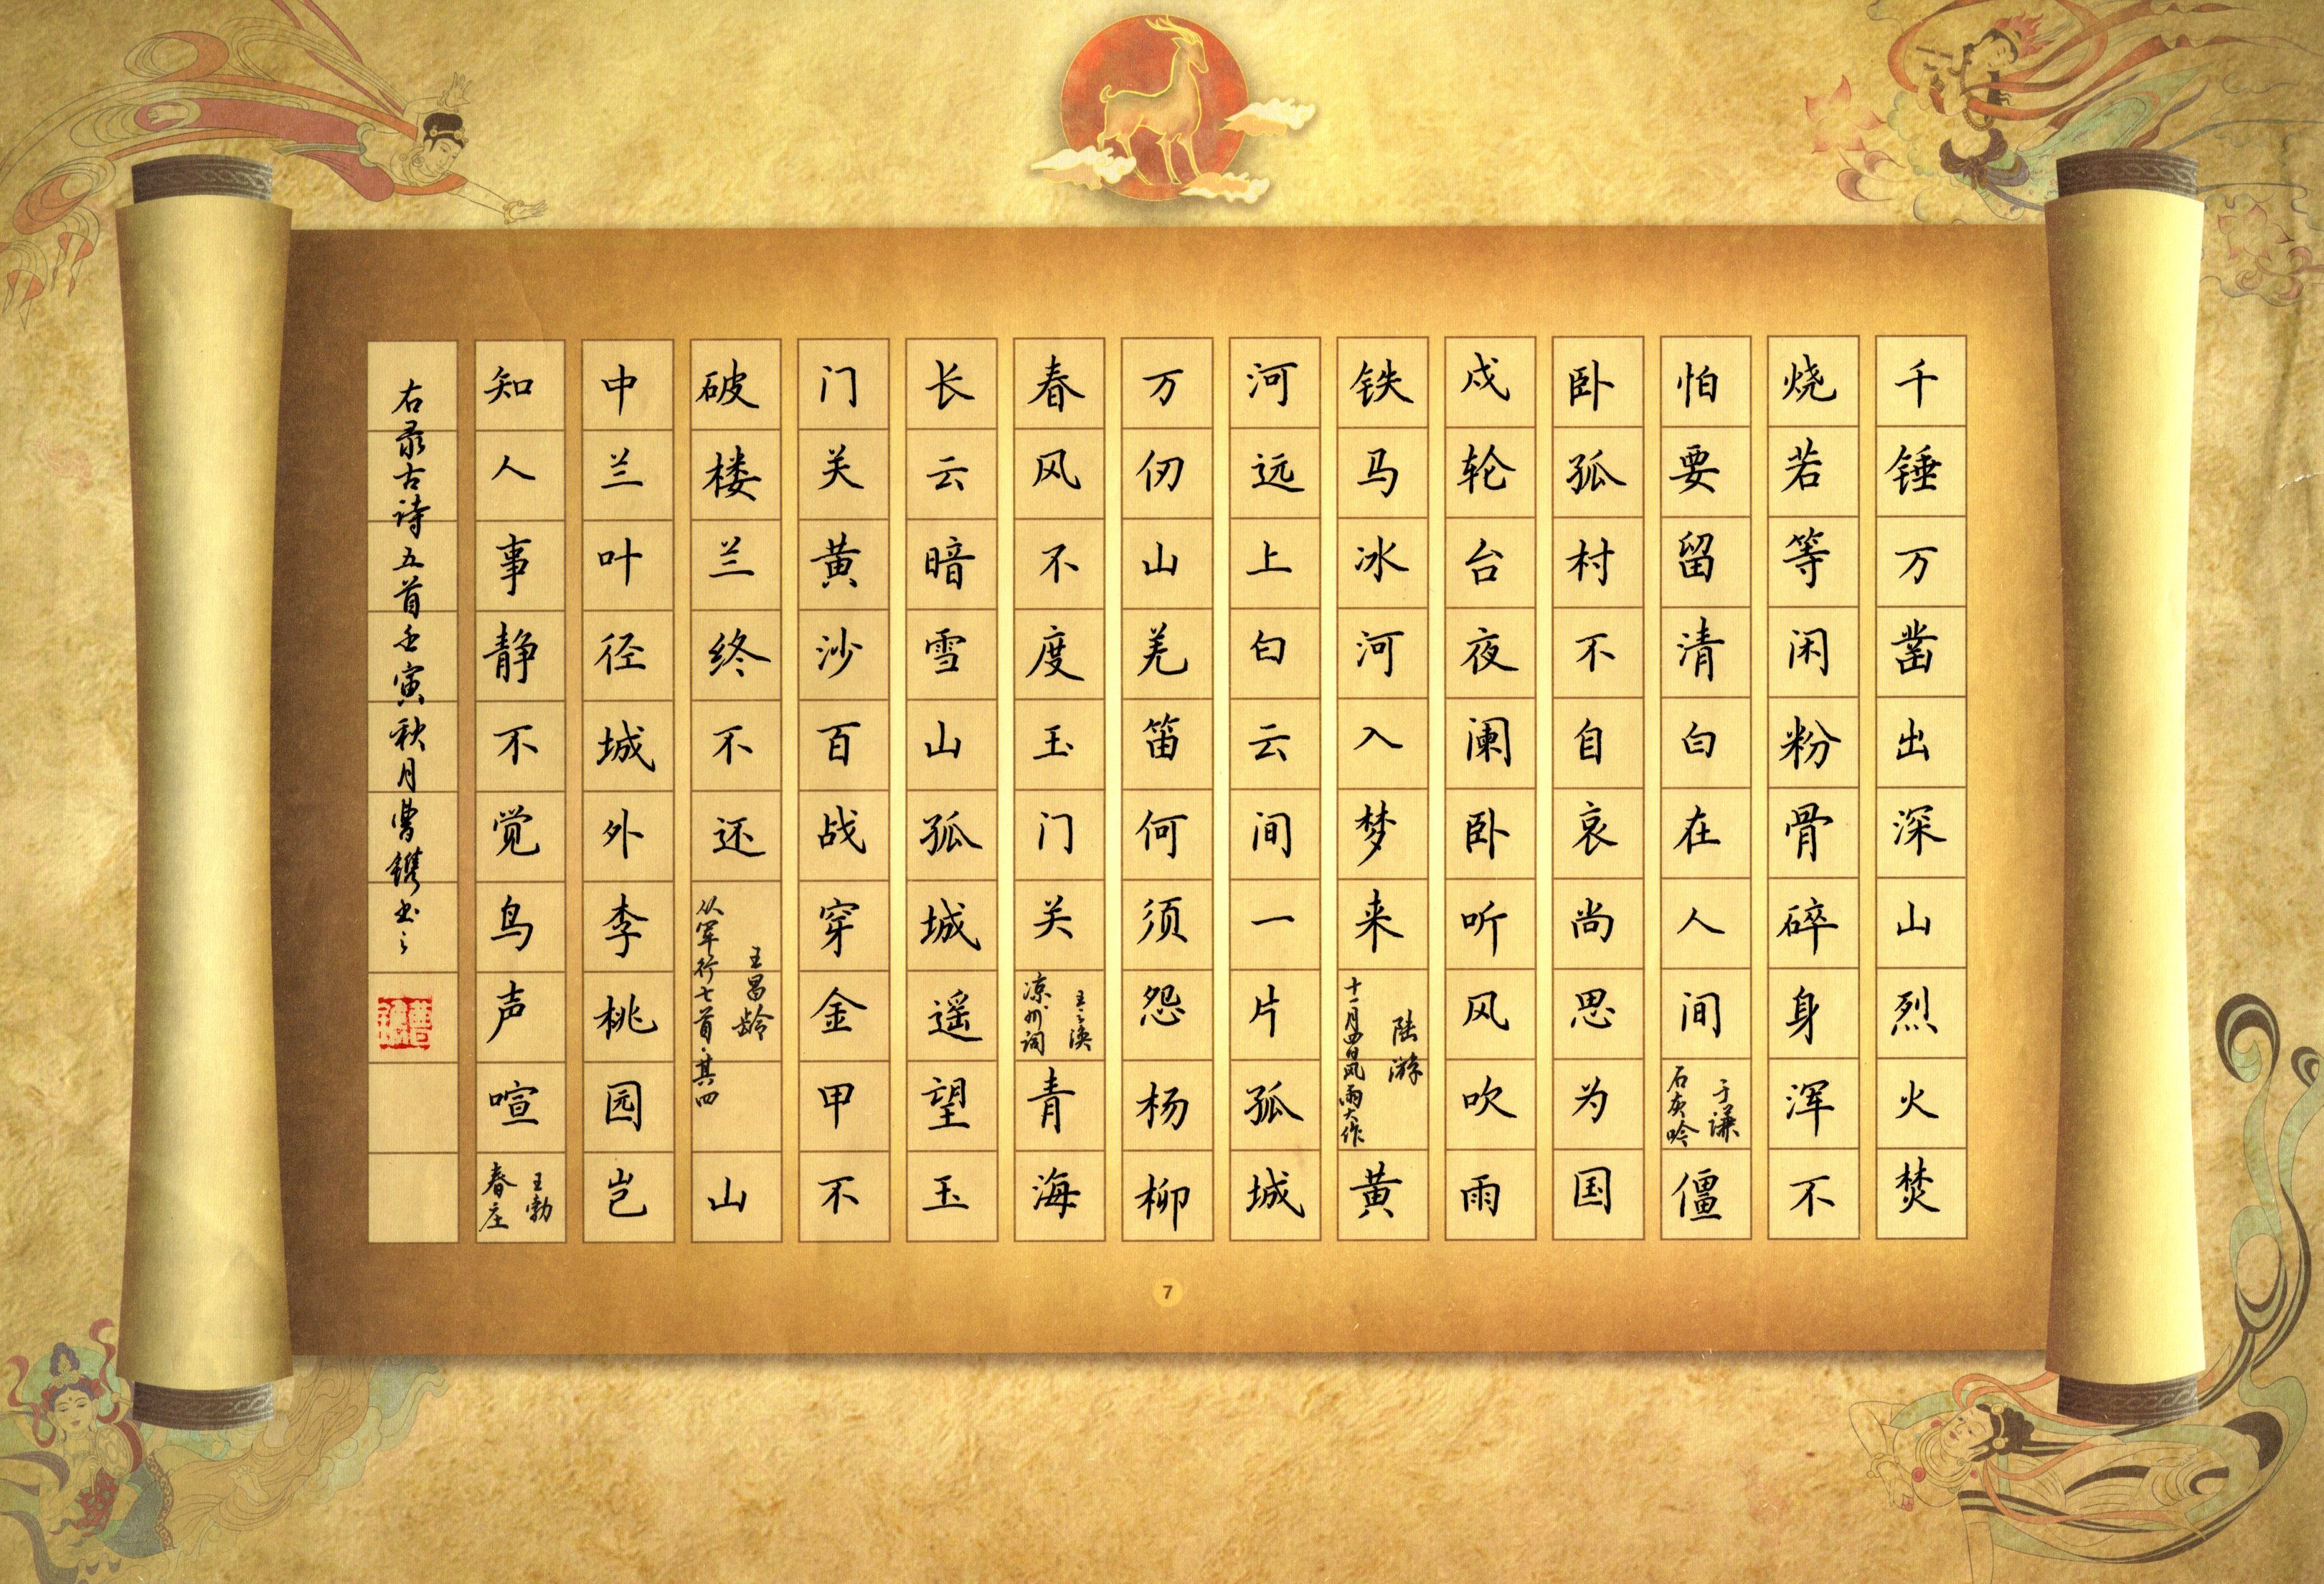 千锤万凿出深山烈火焚
烧若等闲粉骨碎身浑不
怕要留清白在人间 于谦 石灰吟 僵
卧孤村不自哀尚思为国
戍轮台夜阑卧听风吹雨
铁马冰河入梦来 陆游 十一月四日风雨大作 黄
河远上白云间一片孤城
万仞山羌笛何须怨杨柳
春风不度玉门关 王之涣 凉州词 青
海长云暗雪山孤城遥望玉
门关黄沙百战穿金甲不
破楼兰终不还 王昌龄 从军行七首·其四 山
中兰叶径城外李桃园岂
知人事静不觉鸟声喧 王勃 春庄
右录古诗五首壬寅秋月曹镌书之
7